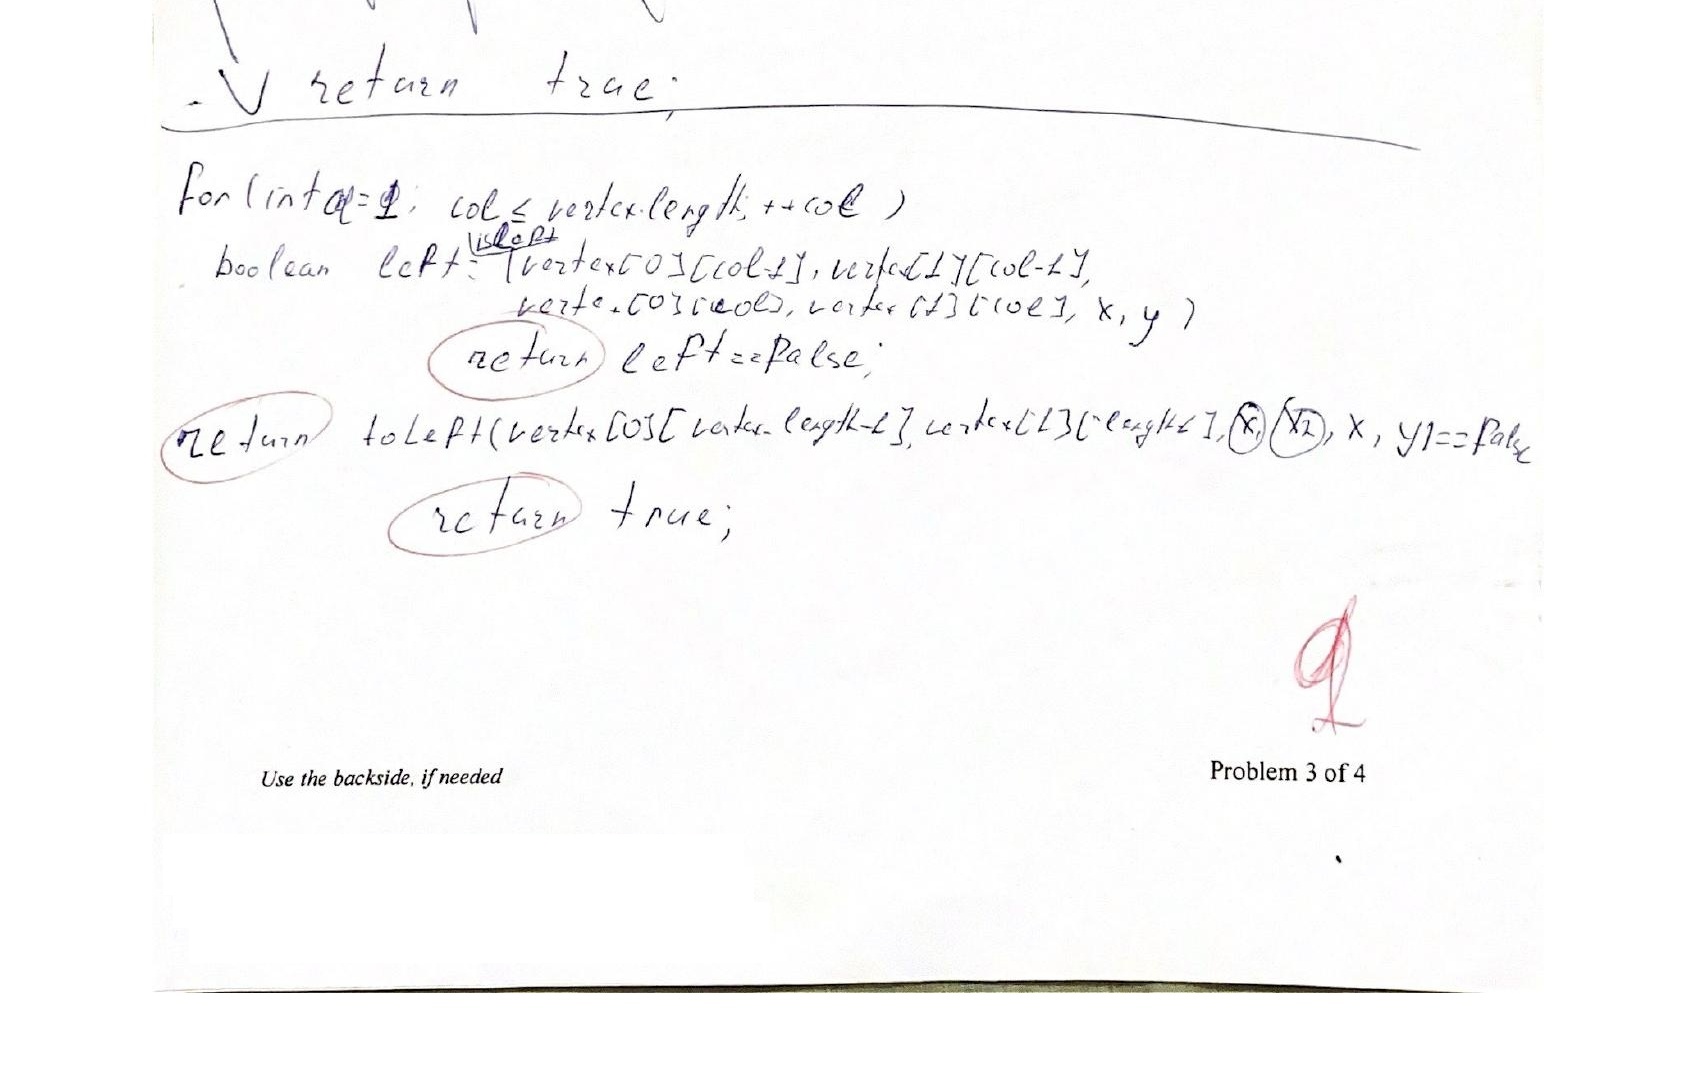 return true;
for (int col=1; col ≤ vertex.length; ++col)
isLeft
boolean left = (vertex[0][col-1], vertex[1][col-1],
vertex[0][col], vertex[1][col], x, y)
return left==false;
return toLeft(vertex[0][vertex.length-1], vertex[1][length-1], x, x2, x, y)==false
return true;
Use the backside, if needed
Problem 3 of 4